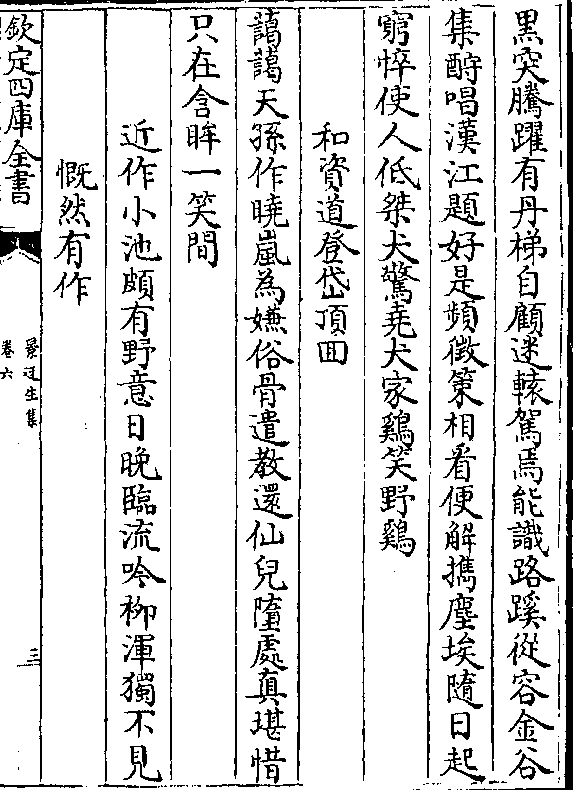 黒突騰躍有丹梯自顧迷轅駕焉能識路蹊從容金谷
集酧唱漢江題好是頻徴策相看便解擕塵埃隨日起
窮悴使人低桀犬驚堯犬家鷄笑野鷄
和資道登岱頂囬
藹藹天孫作曉嵐為嫌俗骨遣教還仙兒墮處真堪惜
只在含眸一笑間
近作小池頗有野意日晚臨流吟柳渾獨不見
慨然有作
欽定四庫全書
景迂生集
卷六
三